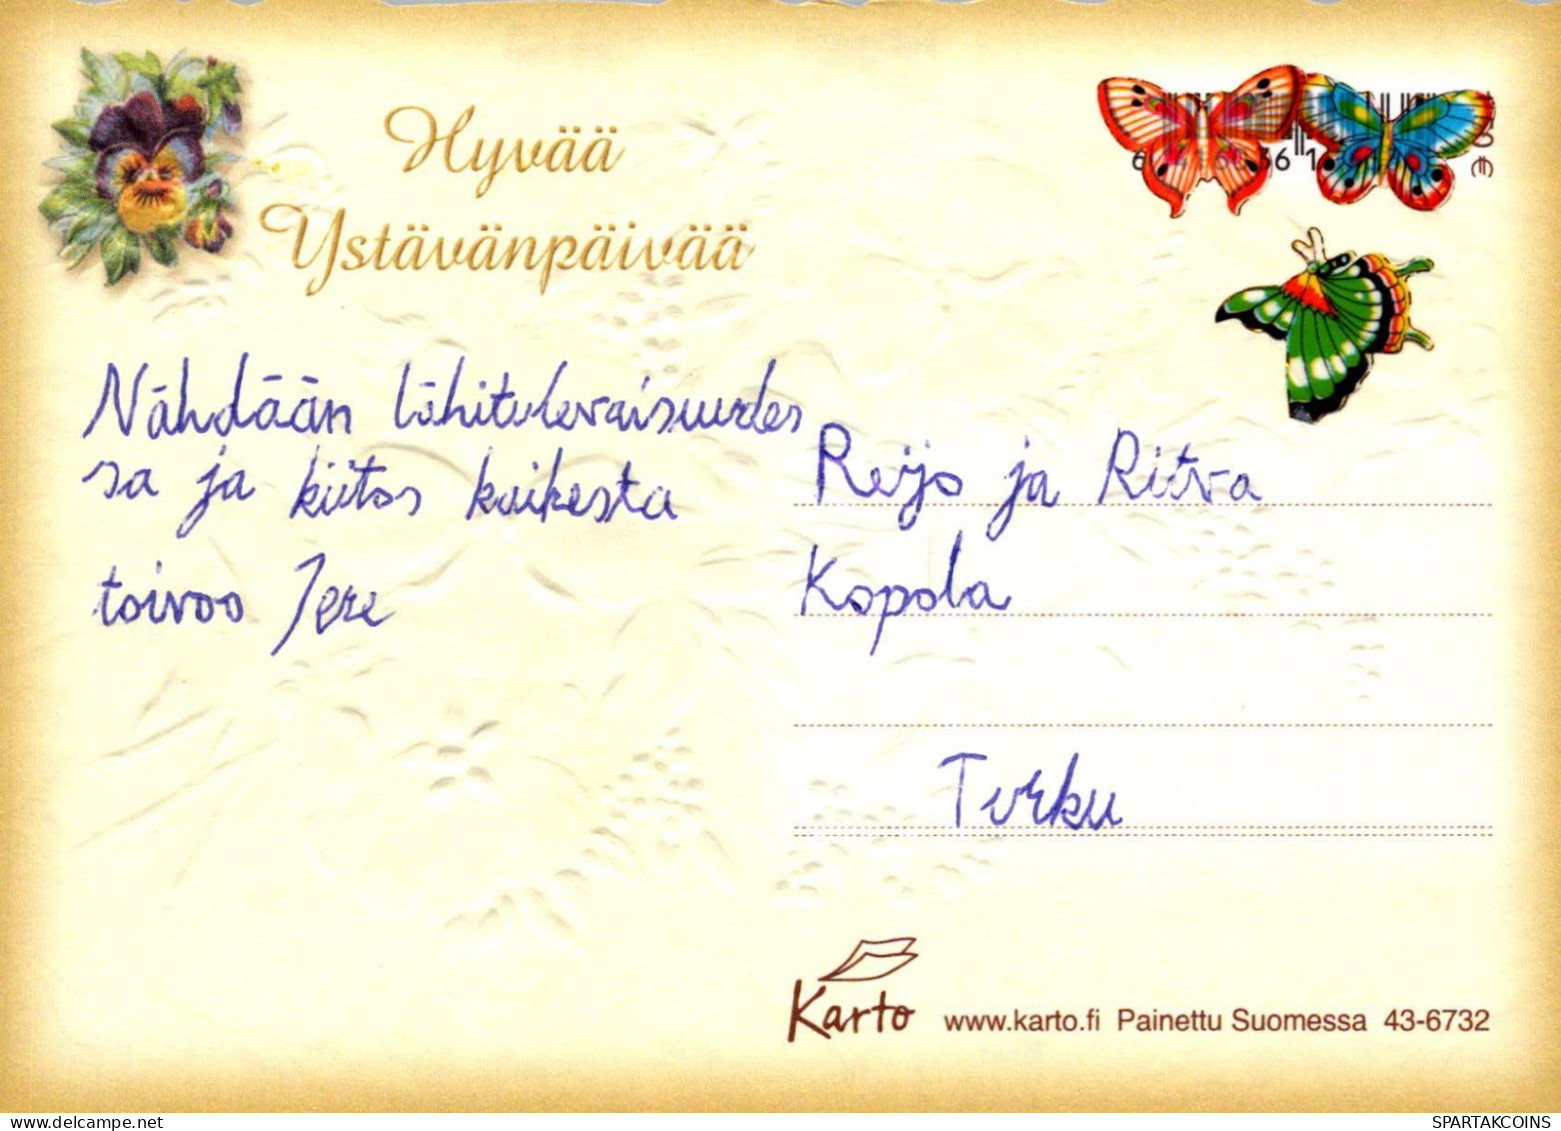 Hyvää
Ystävänpäivää
Nähdään lähitulevaisuudes
sa ja kiitos kaikesta
toivoo Jere
Reijo ja Ritva
Kopola
Turku
Karto
www.karto.fi Painettu Suomessa 43-6732
SPARTAKCOINS